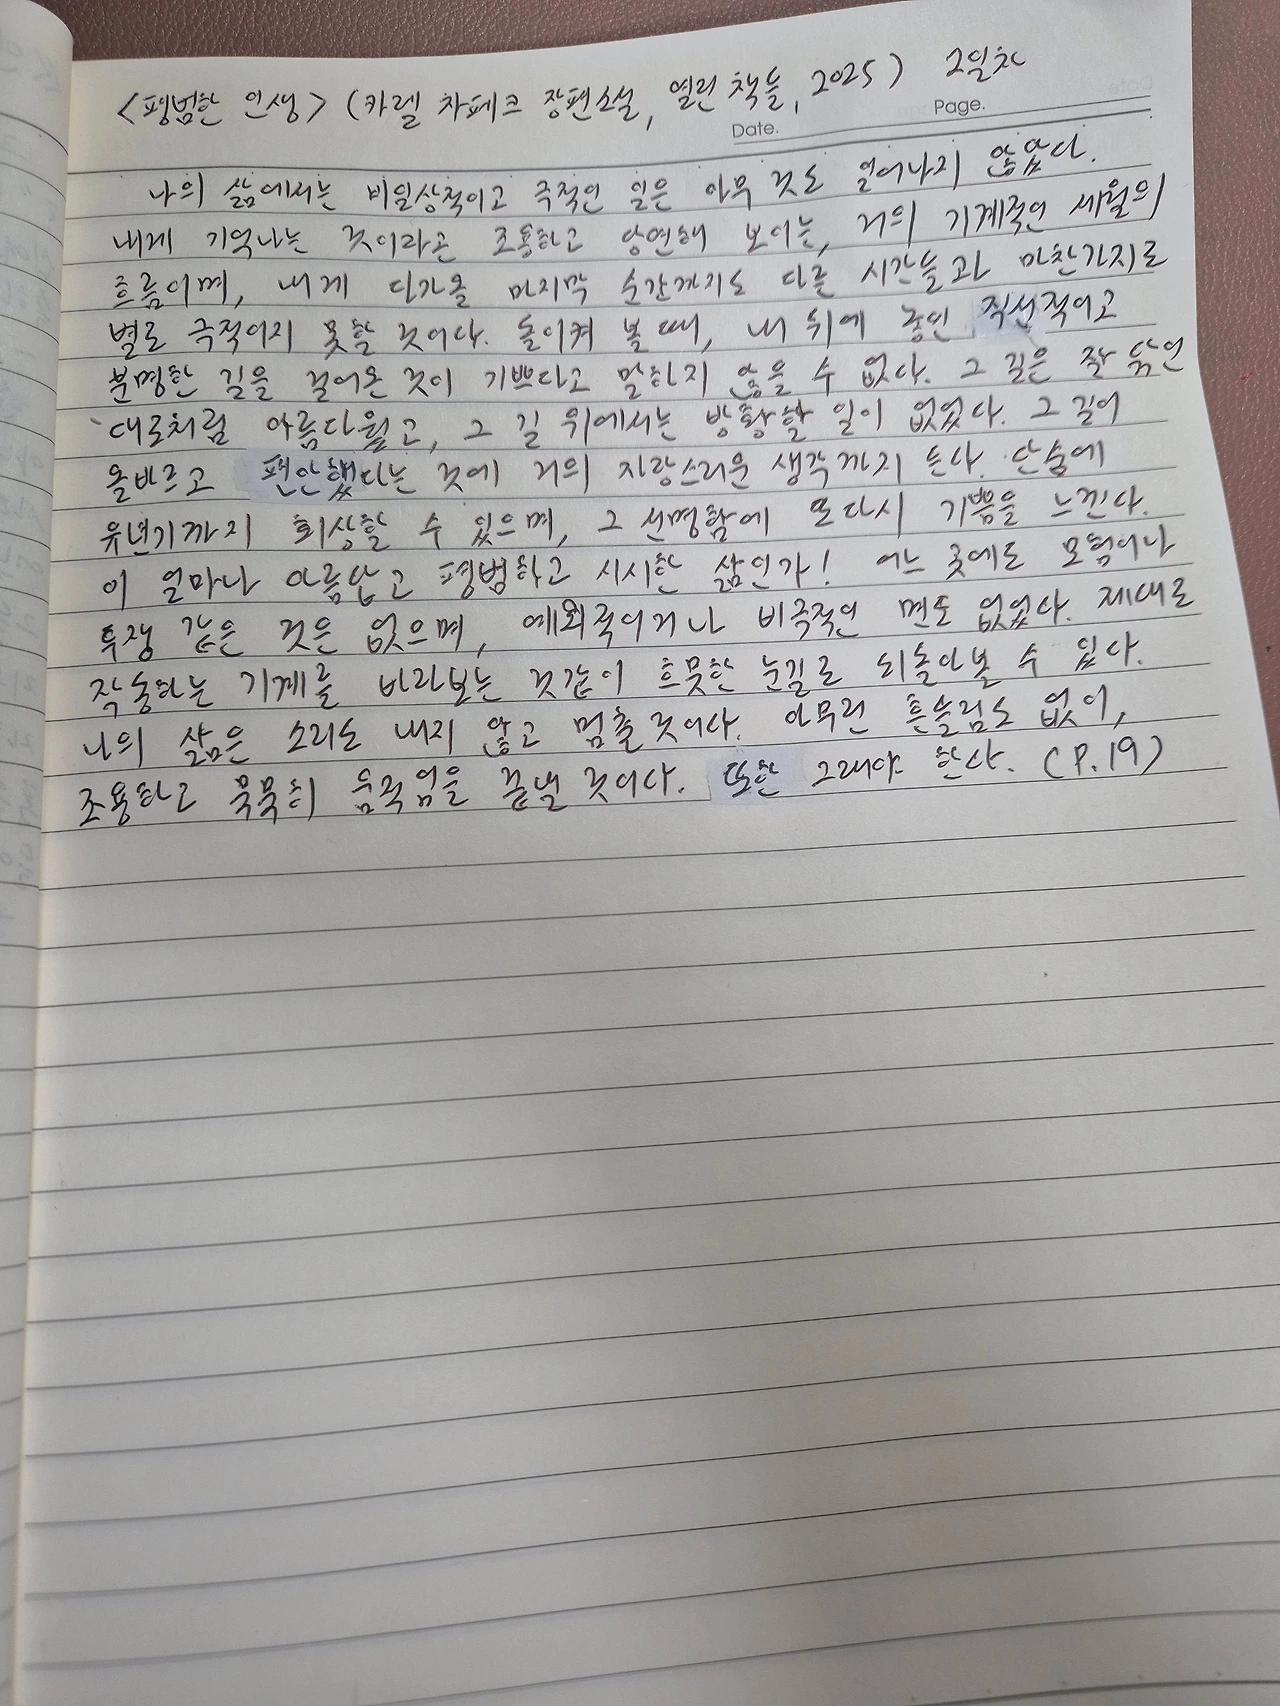 <평범한 인생> (카렐 차페크 장편소설, 열린책들, 2025) 2일차
Date.
Page.
나의 삶에서는 비일상적이고 극적인 일은 아무 것도 일어나지 않았다.
내게 기억나는 것이라곤 조용하고 당연해 보이는, 거의 기계적인 세월의
흐름이며, 내게 다가올 마지막 순간까지도 다른 시간들과 마찬가지로
별로 극적이지 못할 것이다. 돌이켜 볼 때, 내 뒤에 놓인 직선적이고
분명한 길을 걸어온 것이 기쁘다고 말하지 않을 수 없다. 그 길은 잘 닦인
대로처럼 아름다웠고, 그 길 위에서는 방황할 일이 없었다. 그 길이
올바르고 편안했다는 것에 거의 자랑스러운 생각까지 든다. 단숨에
유년기까지 회상할 수 있으며, 그 선명함에 또다시 기쁨을 느낀다.
이 얼마나 아름답고 평범하고 시시한 삶인가! 어느 곳에도 모험이나
투쟁 같은 것은 없으며, 예외적이거나 비극적인 면도 없었다. 제대로
작동하는 기계를 바라보는 것같이 흐뭇한 눈길로 되돌아볼 수 있다.
나의 삶은 소리도 내지 않고 멈출 것이다. 아무런 흔들림도 없이,
조용하고 묵묵히 움직임을 끝낼 것이다. 또한 그래야 한다. (P.19)